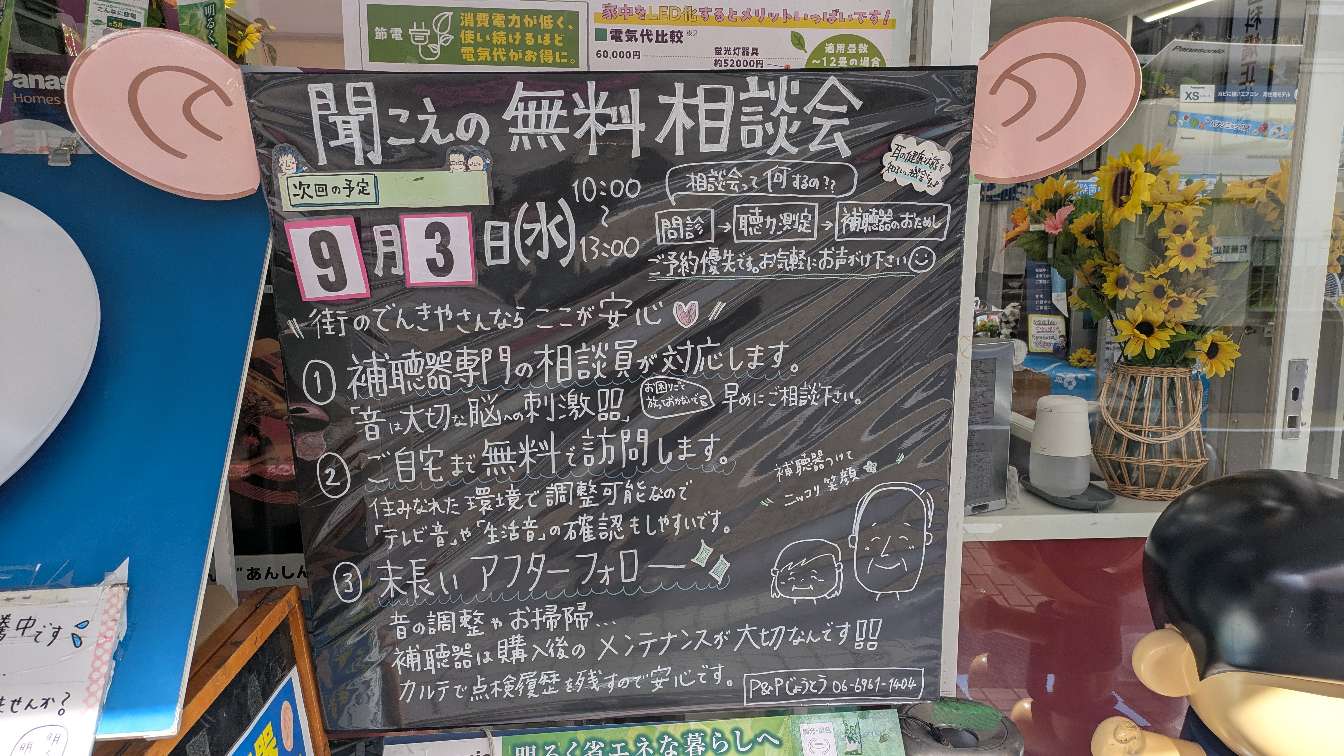 節電
消費電力が低く、
使い続けるほど
電気代がお得に。
家中をLED化するとメリットいっぱいです!
電気代比較
60,000円
蛍光灯器具
約52000円
適用畳数
~12畳の場合
Panasonic
XS
聞こえの無料相談会
次回の予定
9月3日(水)
10:00
~
13:00
相談会って何するの??
問診→聴力測定→補聴器のおためし
ご予約優先です。お気軽にお声がけ下さい
街のでんきやさんならここが安心
① 補聴器専門の相談員が対応します。
「音は大切な脳への刺激」
お困りごと
放っておかないで
早めにご相談下さい。
② ご自宅まで無料で訪問します。
住みなれた環境で調整可能なので
「テレビ音」や「生活音」の確認もしやすいです。
補聴器つけて
ニッコリ笑顔
③ 末長いアフターフォロー
音の調整やお掃除…
補聴器は購入後のメンテナンスが大切なんです!!
カルテで点検履歴を残すので安心です。
P&Pじょうとう 06-6961-1404
"あんしん
中です
ませんか?
明るく省エネな暮らしへ